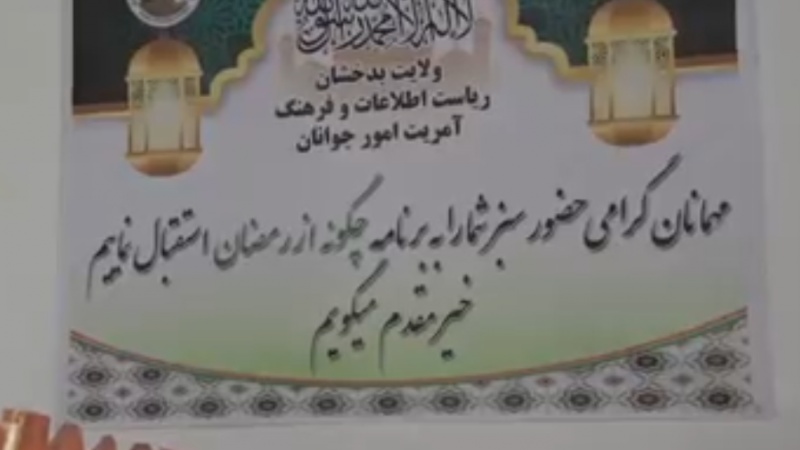 لا اله الا الله محمد رسول الله
ولایت بدخشان
ریاست اطلاعات و فرهنگ
آمریت امور جوانان
مهمانان گرامی حضور سبز شما را به برنامه چگونه از رمضان استقبال نماییم
خیر مقدم میگوییم